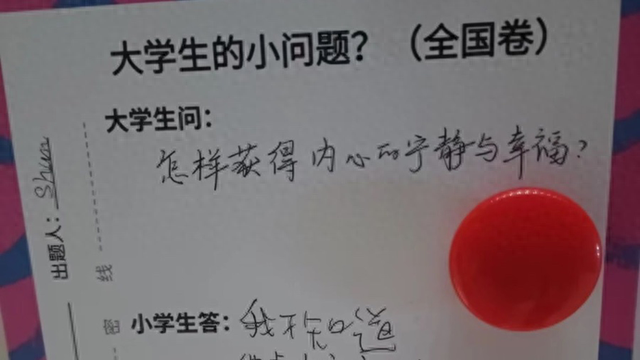 大学生的小问题？（全国卷）
大学生问：
怎样获得内心的宁静与幸福?
出题人：Shun
线
密
小学生答：我不知道